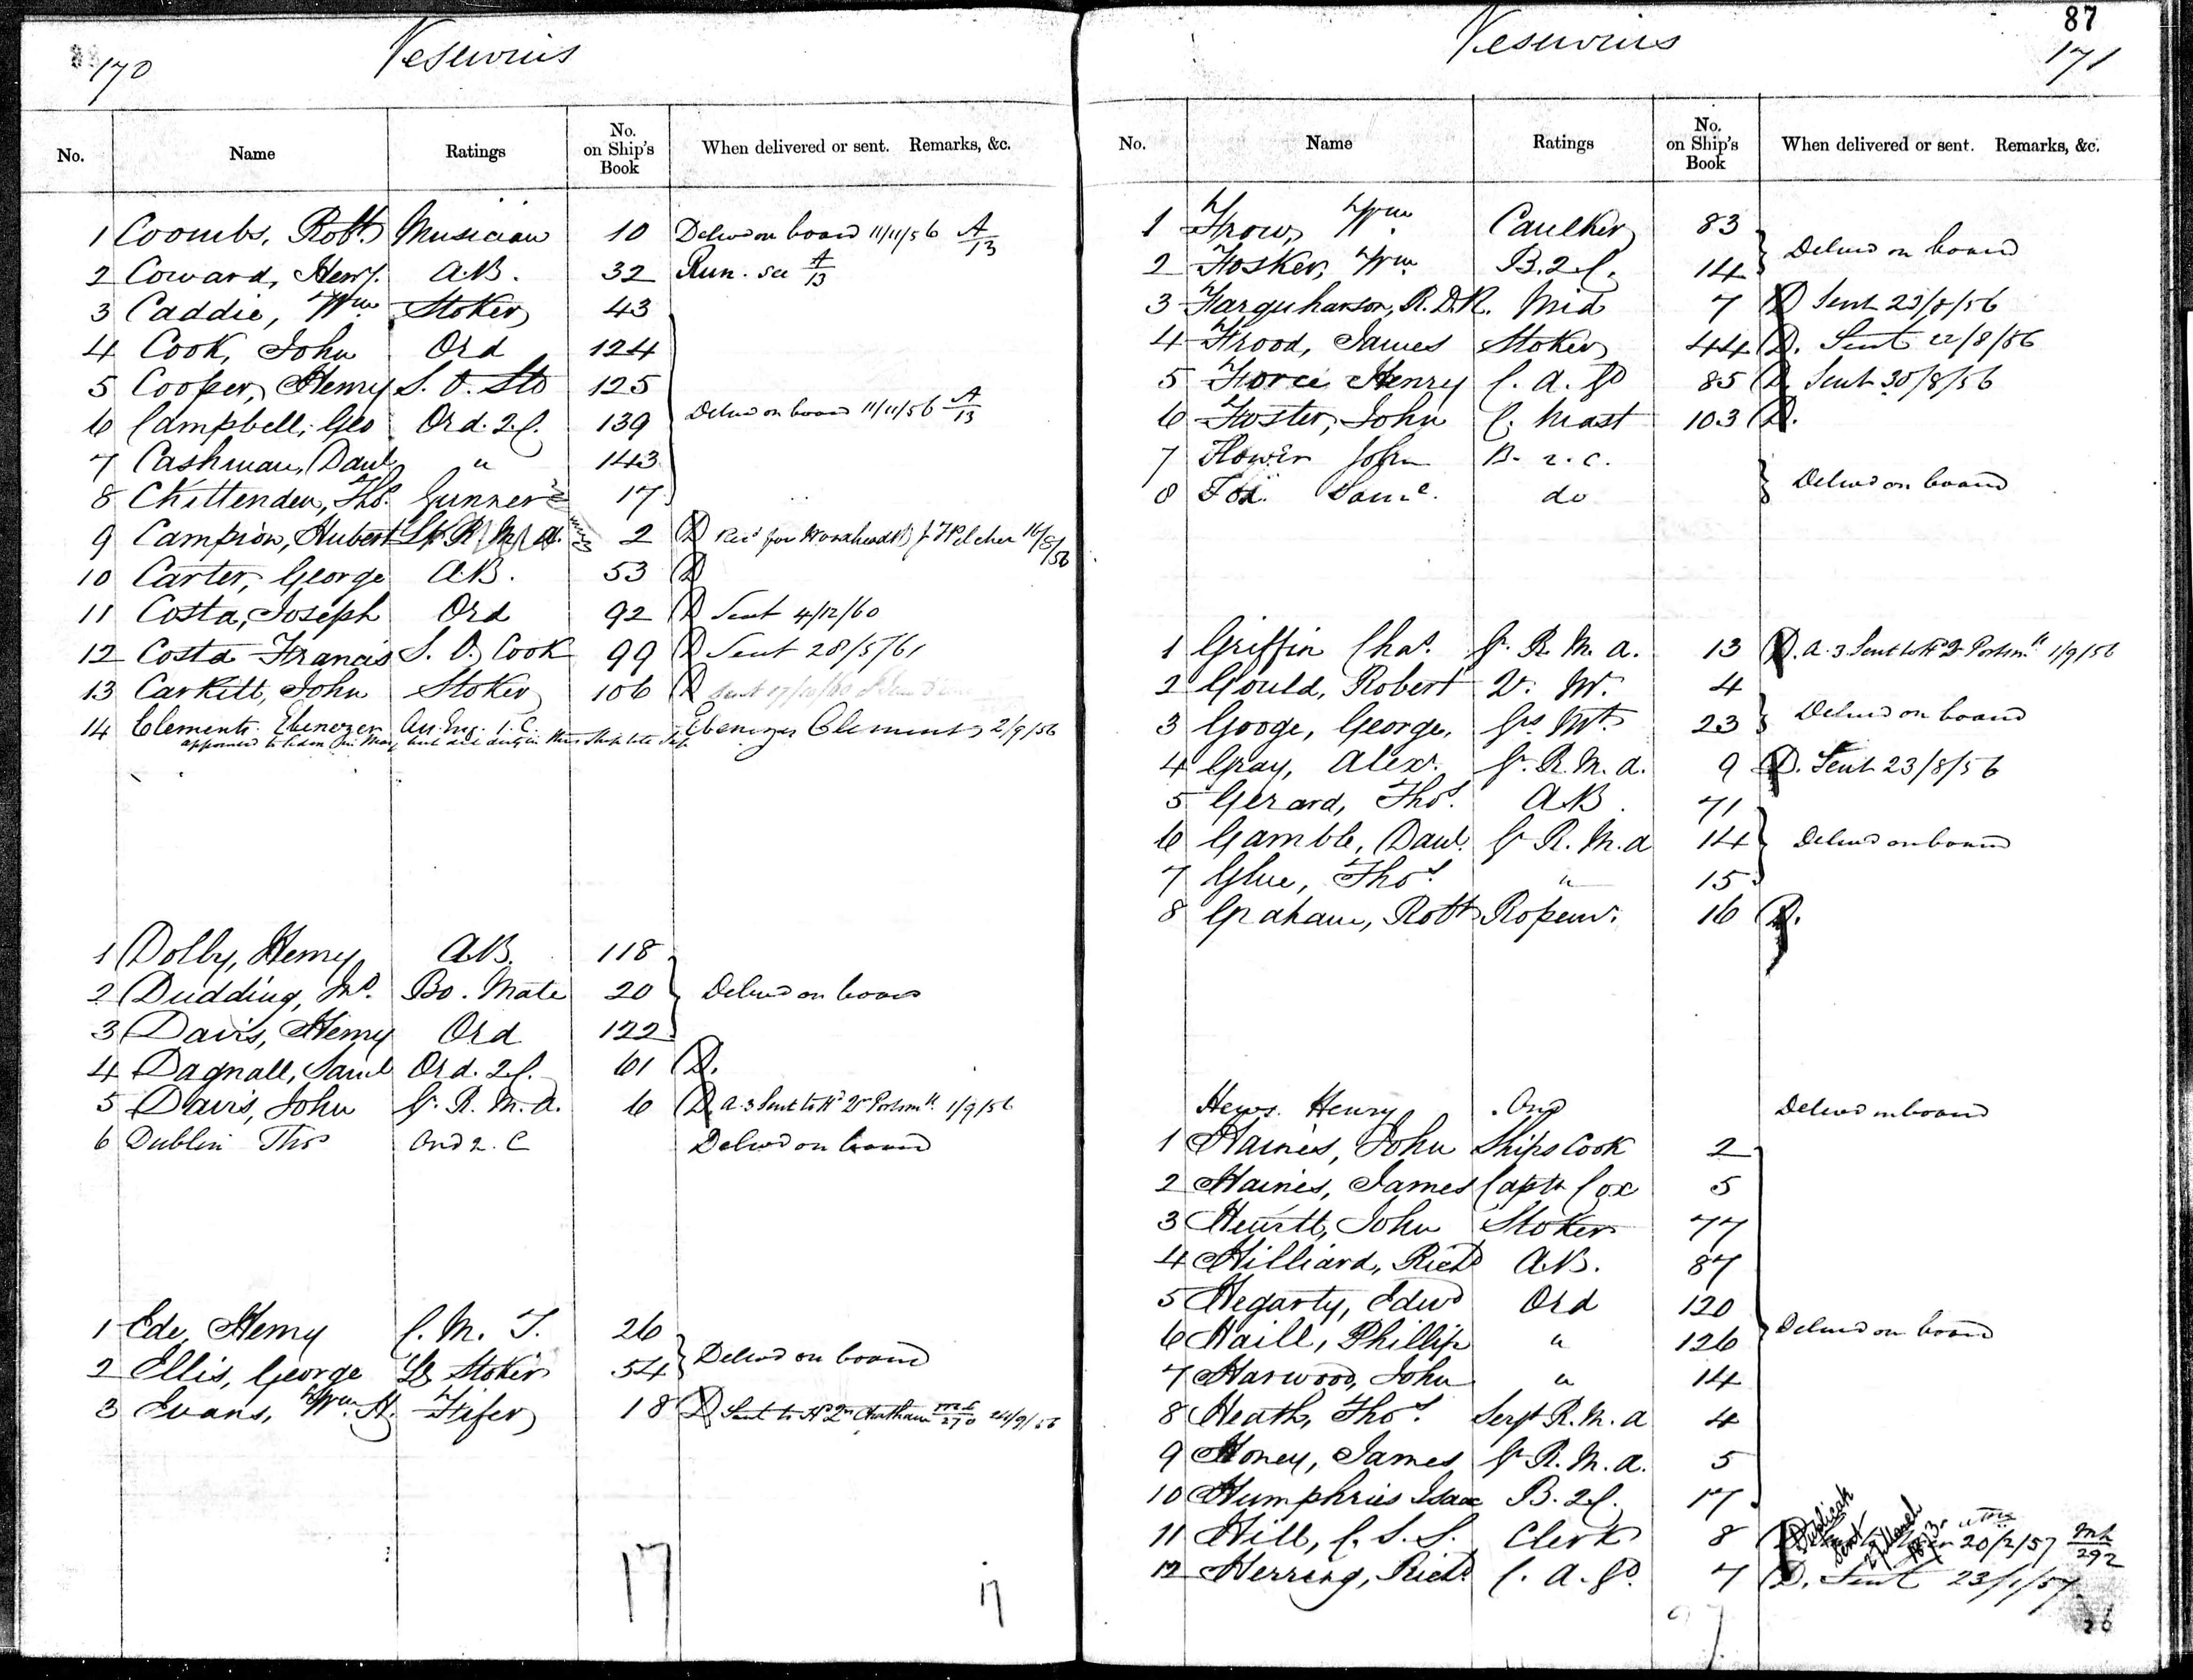 170
Vesuvius
No. Name Ratings No. on Ship's Book When delivered or sent. Remarks, &c.
1 Coombs, Robt. Musician 10 Delivd on board 11/11/56 A/13
2 Coward, Hery. A.B. 32 Run. see A/13
3 Caddie, Wm Stoker 43
4 Cook, John Ord 124
5 Cooper, Henry S. O. Sto 125
6 Campbell, Geo Ord. 2.C. 139 Delivd on board 11/11/56 A/13
7 Cashman, Danl " 143
8 Chittenden, Thos. Gunner 17
9 Campion, Hubert Lt R. M. A. 2 D Recd for Woodhead J. Pilcher 16/8/56
10 Carter, George A.B. 53 D
11 Costa, Joseph Ord 92 D Sent 4/12/60
12 Costa Francis S. O. Cook 99 D Sent 28/5/61
13 Carkitt, John Stoker 106 D Sent 17/10/60
14 Clements. Ebenezer As. Eng. 1. C. Ebenezer Clements 2/9/56
1 Dolby, Henry A.B. 118
2 Dudding, Jno. Bo. Mate 20 Delivd on board
3 Davis, Henry Ord 122
4 Dagnall, Saml Ord. 2.C. 61 D.
5 Davis, John Gr. R. M. A. 6 D. A.3 Sent to Hd Qr Portsmth. 1/9/56
6 Dublin Thos Ord 2. C Delivd on board
1 Ede, Henry C. M. T. 26
2 Ellis, George Lg Stoker 54 Delivd on board
3 Evans, Wm. H. Fifer 18 D Sent to Hd Qrs Chatham 270 24/9/56
17
17
87
Vesuvius
171
No. Name Ratings No. on Ship's Book When delivered or sent. Remarks, &c.
1 Frow, Wm. Caulker 83
2 Fosker, Wm. B.2.C. 14 Delivd on board
3 Farquharson, R.D.R. Mid 7 D Sent 23/8/56
4 Frood, James Stoker 44 D. Sent 22/8/56
5 Force Henry C. A. Gd 85 D. Sent 30/8/56
6 Foster, John C. Mast 103 D.
7 Flower John B. 2. C.
8 Fox. Saml. do Delivd on board
1 Griffin Chas. Gr. R. M. A. 13 D. A.3 Sent to Hd Qr Portsmth 1/9/56
2 Gould, Robert 2r. Mr. 4
3 Googe, George, Grs Mt. 23 Delivd on board
4 Gray, Alexr. Gr. R. M. A. 9 D. Sent 23/8/56
5 Gerard, Thos. A.B. 71
6 Gamble, Danl. Gr R. M. A 14 Delivd on board
7 Glue, Thos. " 15
8 Graham, Robt Ropemr. 16 D.
Hews. Henry Ord Delivd on board
1 Haines, John Ships Cook 2
2 Haines, James Captn Cox 5
3 Hewitt, John Stoker 77
4 Hilliard, Richd A.B. 87
5 Hegarty, Edwd Ord 120
6 Haill, Phillip " 126 Delivd on board
7 Harwood, John " 14
8 Heath, Thos. Sergt R. M. A 4
9 Honey, James Gr. R. M. A. 5
10 Humphries Isaac B. 2.C. 17
11 Hill, C. S. S. Clerk 8 D 20/2/57 292
Duplicate Sent 27 March 1873
12 Herring, Richd C. A. Gd. 7 D. Sent 23/1/57